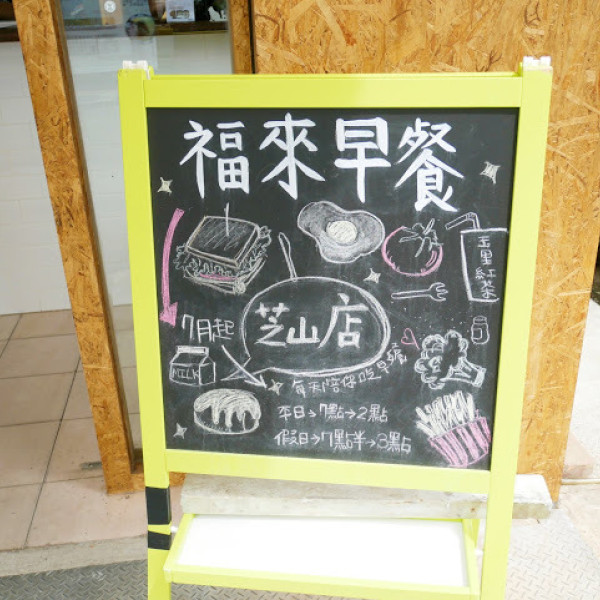 福來早餐
玉里紅茶
芝山店
7月起
MILK
每天陪你吃早餐
本日→7點→2點
假日→7點半→3點